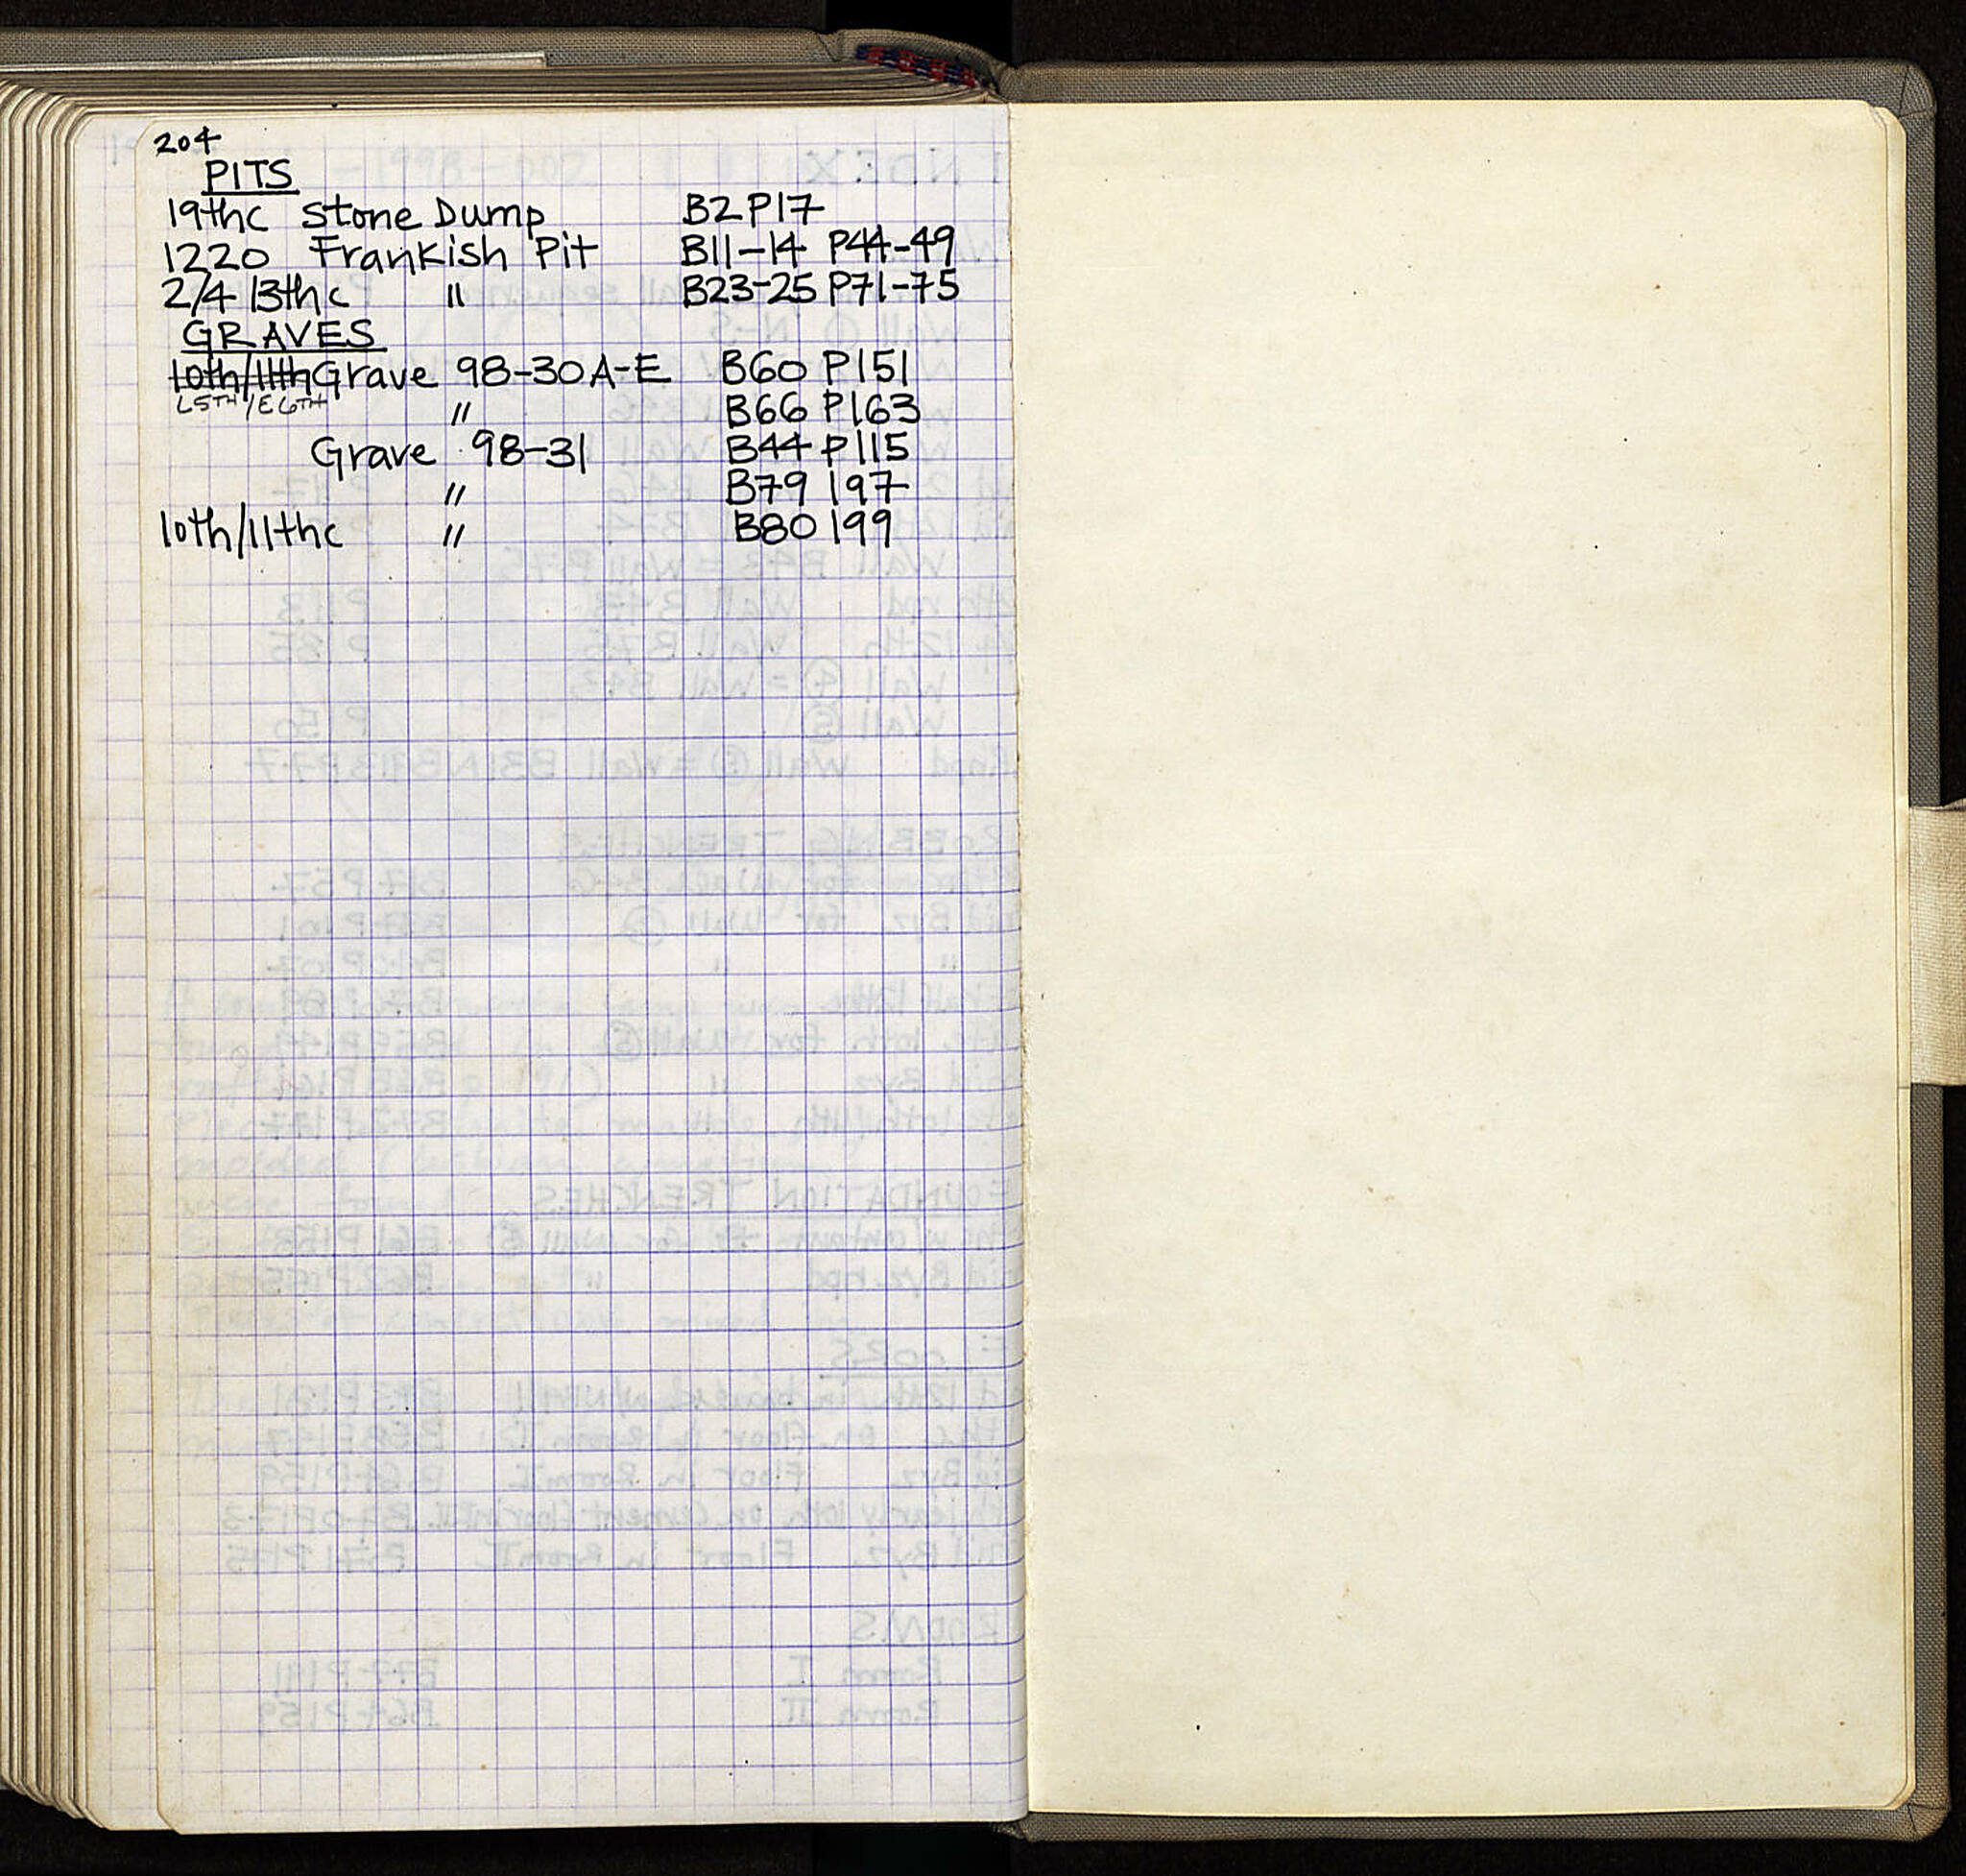 204
PITS
19thc Stone Dump B2 P17
1220 Frankish Pit B11-14 P44-49
2/4 13thc " B23-25 P71-75
GRAVES
10th/11th Grave 98-30A-E B60 P151
L5TH/E6TH " B66 P163
Grave 98-31 B44 P115
" B79 197
10th/11thc " B80 199